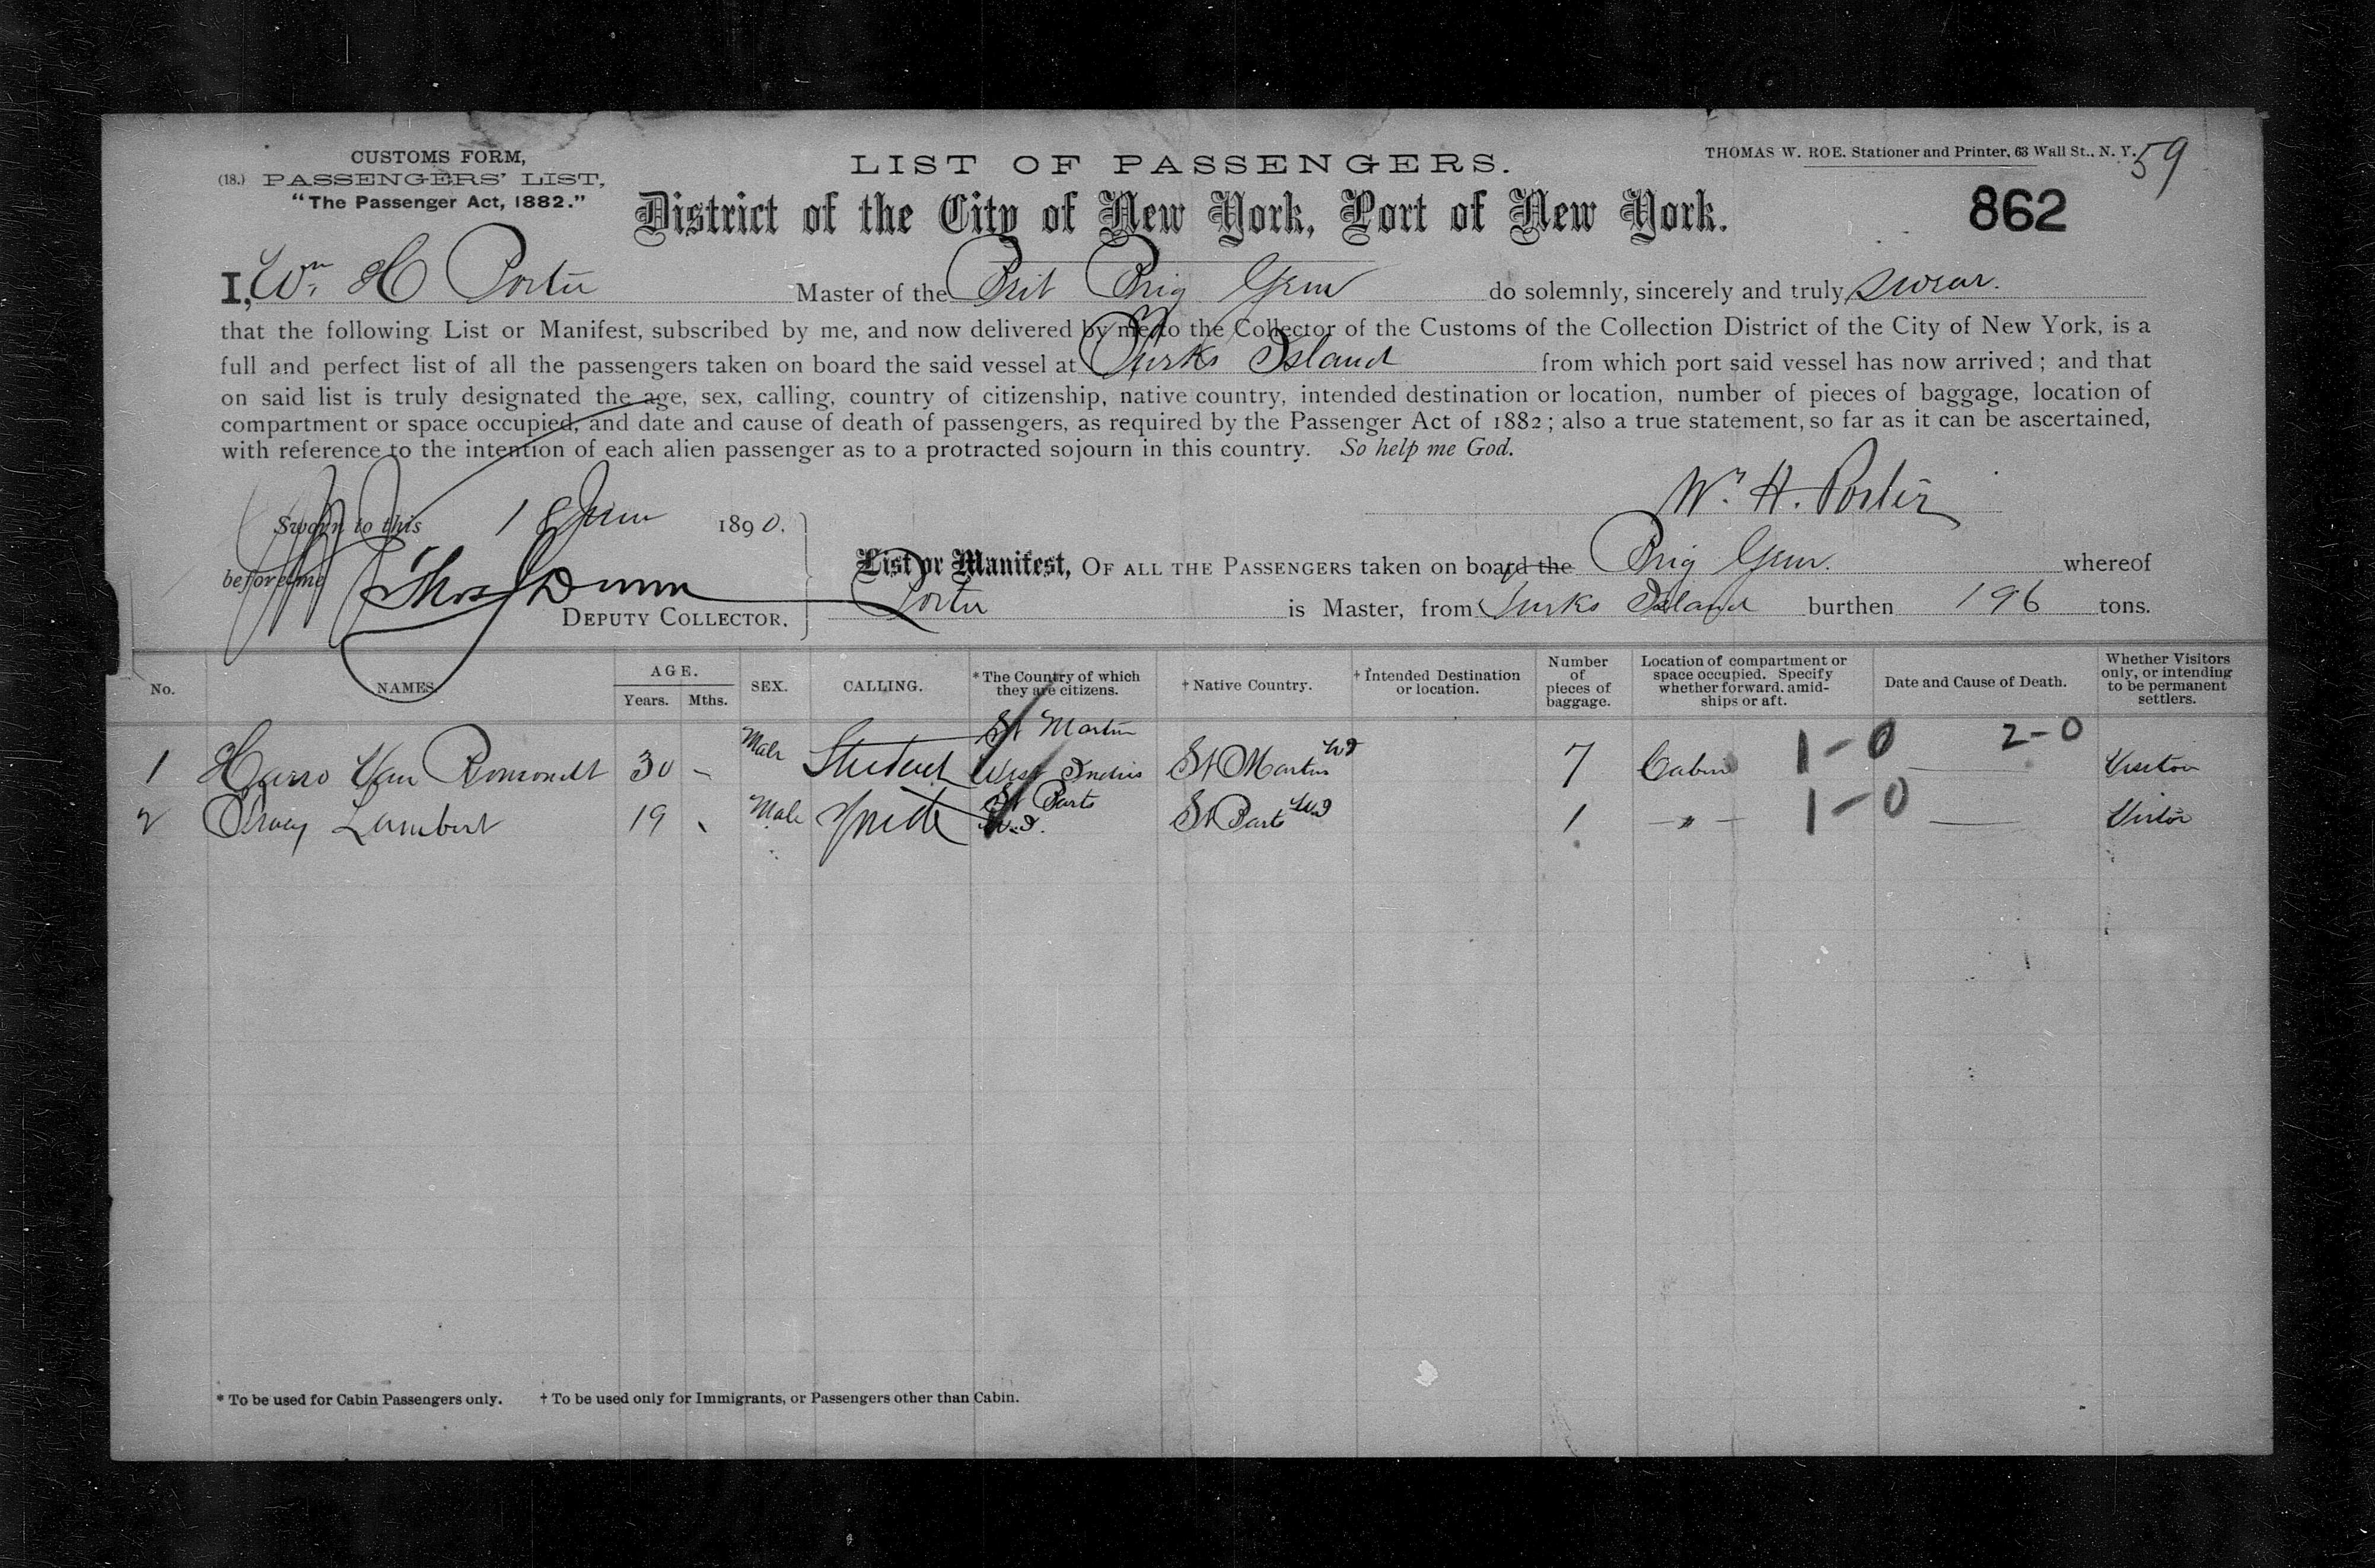 CUSTOMS FORM,
(18.) PASSENGERS' LIST,
"The Passenger Act, 1882."
LIST OF PASSENGERS.
THOMAS W. ROE. Stationer and Printer, 63 Wall St., N. Y.
59
District of the City of New York, Port of New York.
862
I, Wm H Porter Master of the Brit Brig Gem do solemnly, sincerely and truly swear.
that the following List or Manifest, subscribed by me, and now delivered by me to the Collector of the Customs of the Collection District of the City of New York, is a
full and perfect list of all the passengers taken on board the said vessel at Turks Island from which port said vessel has now arrived; and that
on said list is truly designated the age, sex, calling, country of citizenship, native country, intended destination or location, number of pieces of baggage, location of
compartment or space occupied, and date and cause of death of passengers, as required by the Passenger Act of 1882; also a true statement, so far as it can be ascertained,
with reference to the intention of each alien passenger as to a protracted sojourn in this country. So help me God.
Wm. H. Porter
Sworn to this 18 June 1890.
before me Thos Dunn
DEPUTY COLLECTOR.
List or Manifest, OF ALL THE PASSENGERS taken on board the Brig Gem. whereof
Porter is Master, from Turks Island burthen 196 tons.
No. NAMES. AGE. Years. Mths. SEX. CALLING. *The Country of which they are citizens. †Native Country. †Intended Destination or location. Number of pieces of baggage. Location of compartment or space occupied. Specify whether forward, amid-ships or aft. Date and Cause of Death. Whether Visitors only, or intending to be permanent settlers.
1 Harro Van Romondt 30 - Male Student St Martin West Indies St Martins WI 7 Cabin 1-0 2-0 Visitor
2 Lambert 19 Male St Barts W.I. St Barts WI 1 - " - 1-0 Visitor
* To be used for Cabin Passengers only. † To be used only for Immigrants, or Passengers other than Cabin.